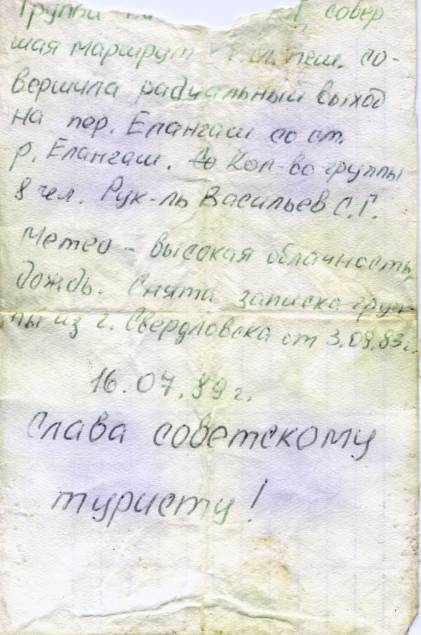 Группа совер
шая маршрут пеш. со-
вершила радиальный выход
на пер. Елангаш со ст.
р. Елангаш. Кол-во группы
8 чел. Рук-ль Васильев С.Г.
Метео - высокая облачность,
дождь. Снята записка груп-
пы из г. Свердловска от 3.08.83г.
16.07.89г.
Слава советскому
туристу!